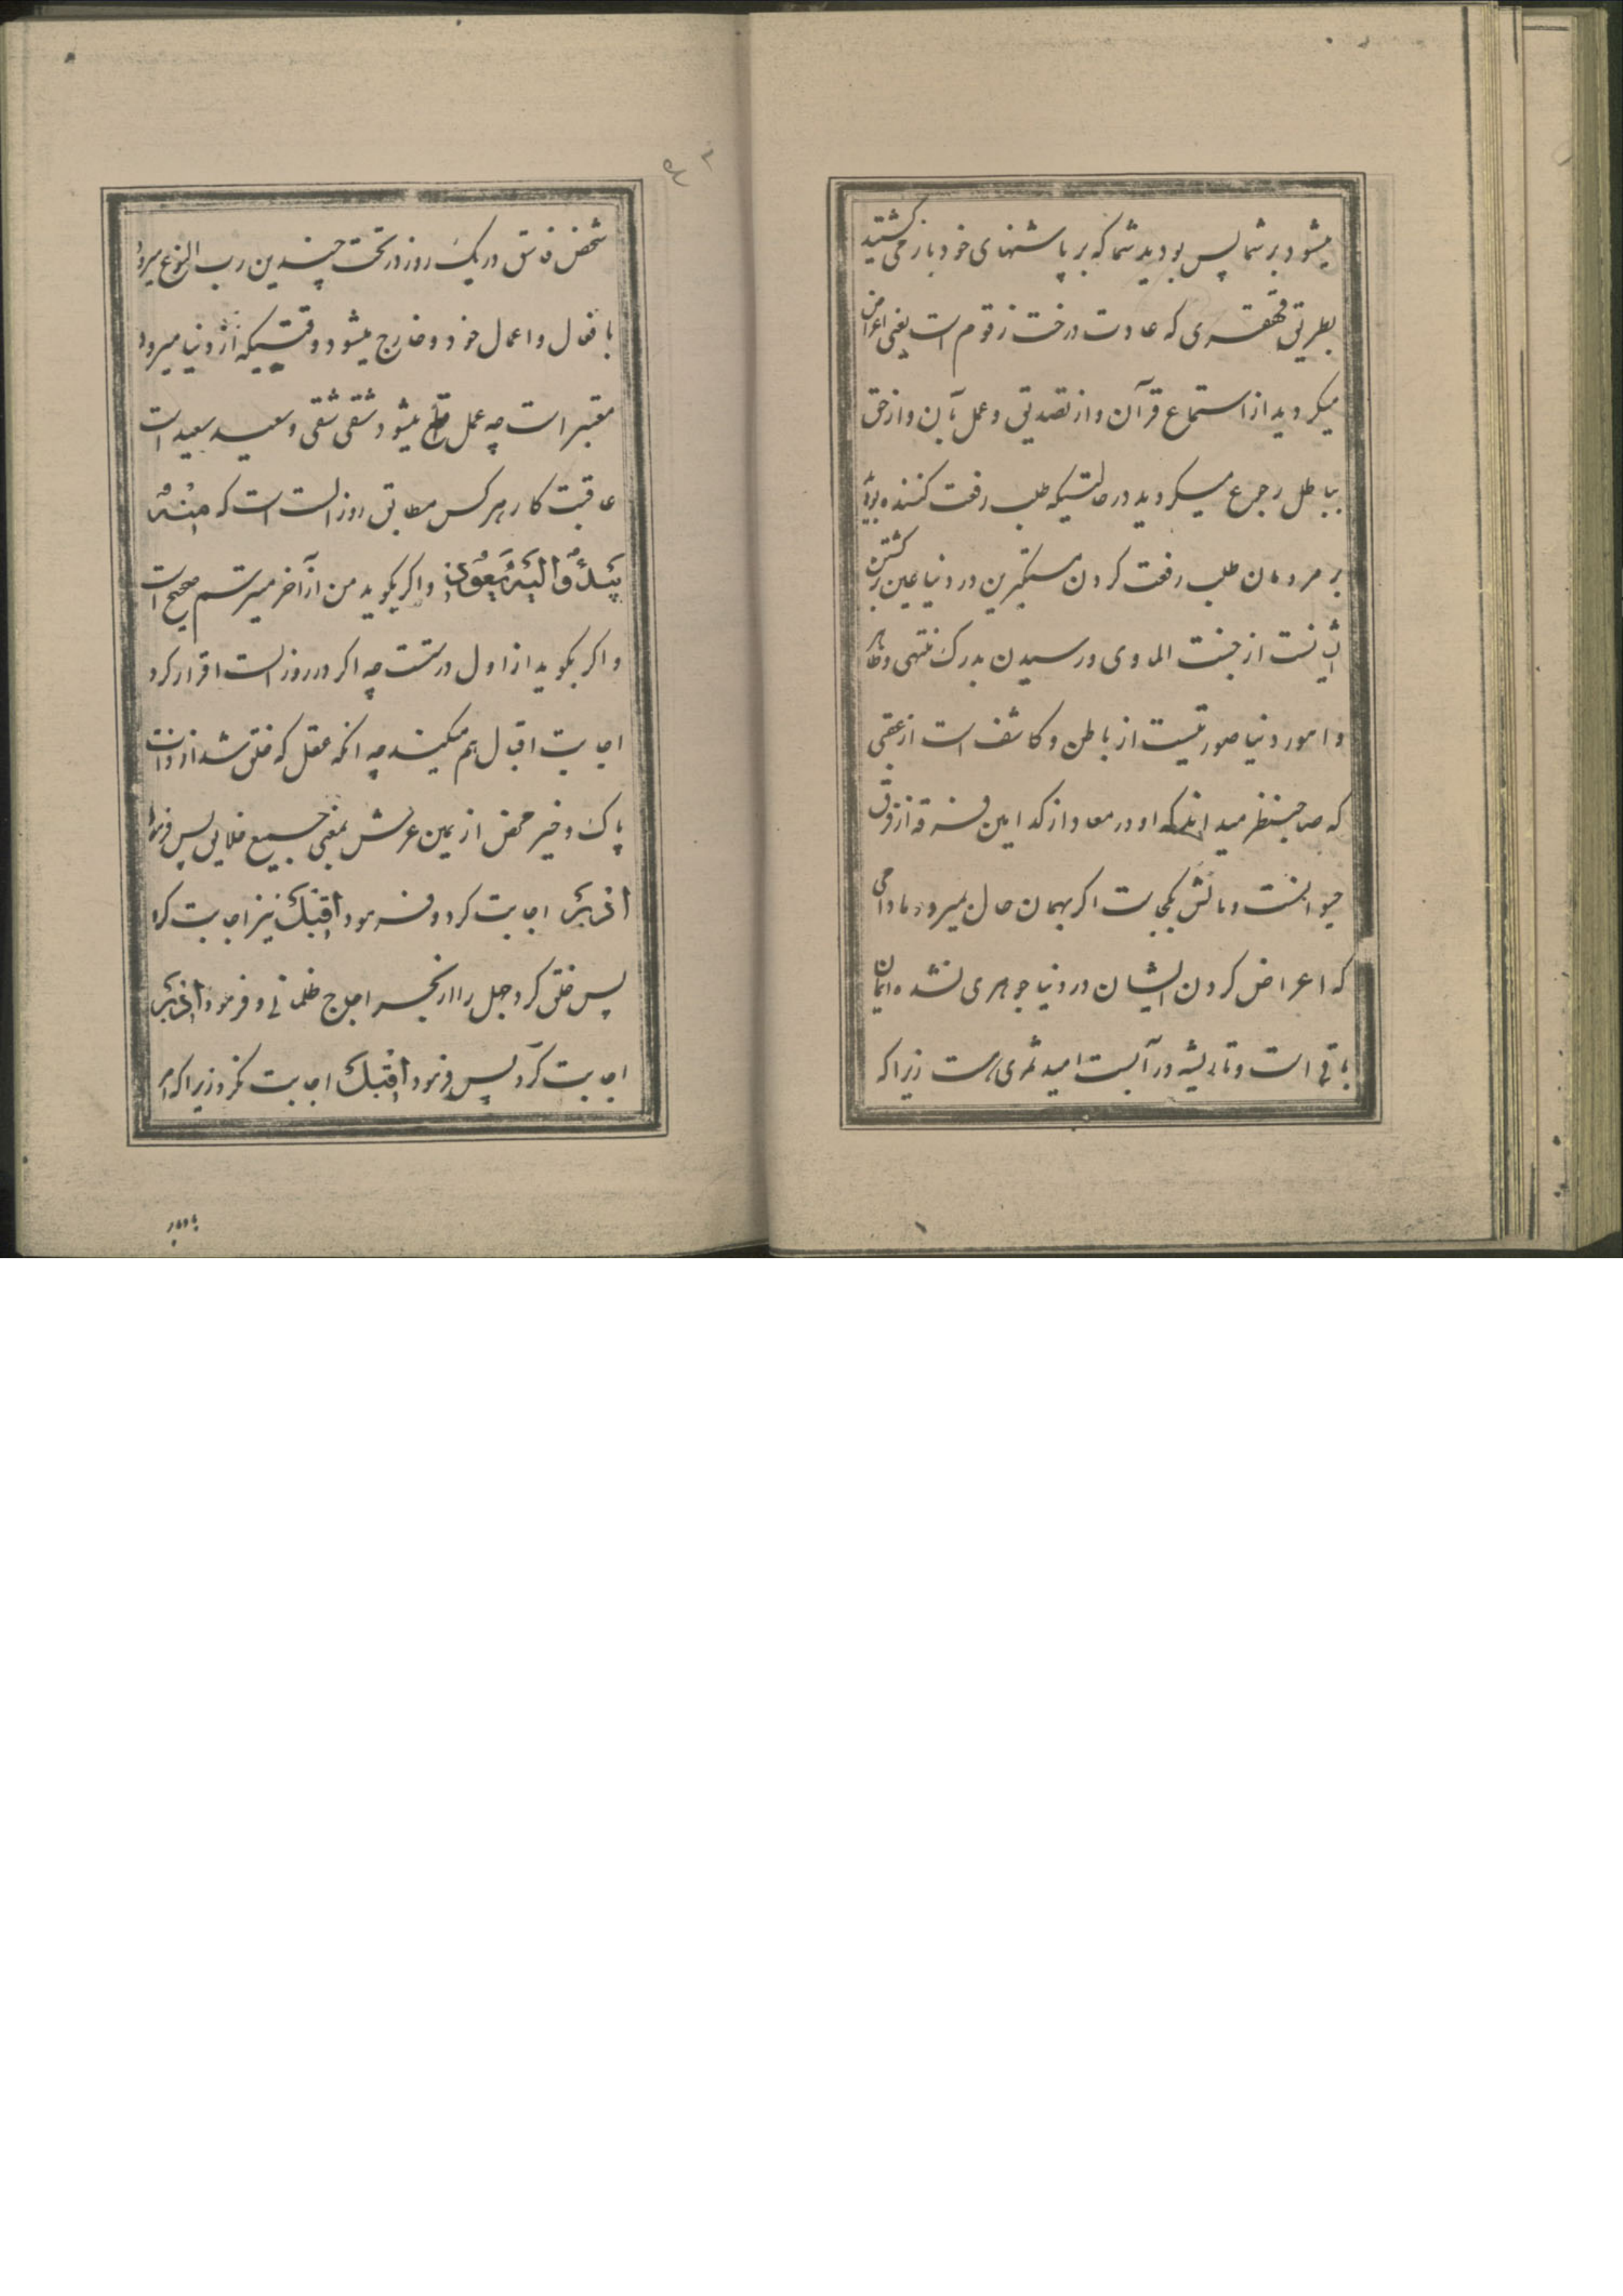 میشود بر شما پس بودید شما که بر پاشنهای خود باز می کشتید
بطریق قهقری که عادت درخت زقوم است یعنی اعراض
میکردید از استماع قرآن و از تصدیق و عمل بآن و از حق
بباطل رجوع میکردید در حالتیکه طلب رفعت کننده بودید
بر مردمان طلب رفعت کردن مستکبرین در دنیا عین برکشتن
ایشانست از جنت الماوی و رسیدن بدرک منتهی و ظاهر
و امور دنیا صورتیست از باطن و کاشف است از عقبی
که صاحبنظر میداند که او در معاد از کدامین فرقه از فرق
حیوانست و مآلش بکجاست اگر بهمان حال بمیرد مادامی
که اعراض کردن ایشان در دنیا جوهری نشده ایمان
باقی است و تا ریشه در آبست امید ثمری هست زیرا که
شخص فاسق در یک روز در تحت چندین رب النوع میرود
بافعال و اعمال خود و خارج میشود وقتیکه از دنیا میرود
معتبر است چه عمل قطع میشود شقی شقی و سعید سعید است
عاقبت کار هر کس مطابق روز الست است که مِنْهُ
بَدْؤُ وَ اِلَیْهِ یَعُوْدُ و اکر بکوید من از آخر میترسم صحیح است
و اکر بکوید از اول درستست چه اکر در روز الست اقرار کرد
اجابت اقبال هم میکند چه انکه عقل که خلق شد از ذات
پاک و خیر محض از یمین عرش بمعنی جمیع خلایق پس فرمود
اَدْبِرْ اجابت کرد و فرمود اَقْبِلْ نیز اجابت کرد
پس خلق کرد جهل را از بحر اجاج ظلمانی و فرمود اَدْبِرْ
اجابت کرد پس فرمود اَقْبِلْ اجابت نکرد زیرا که